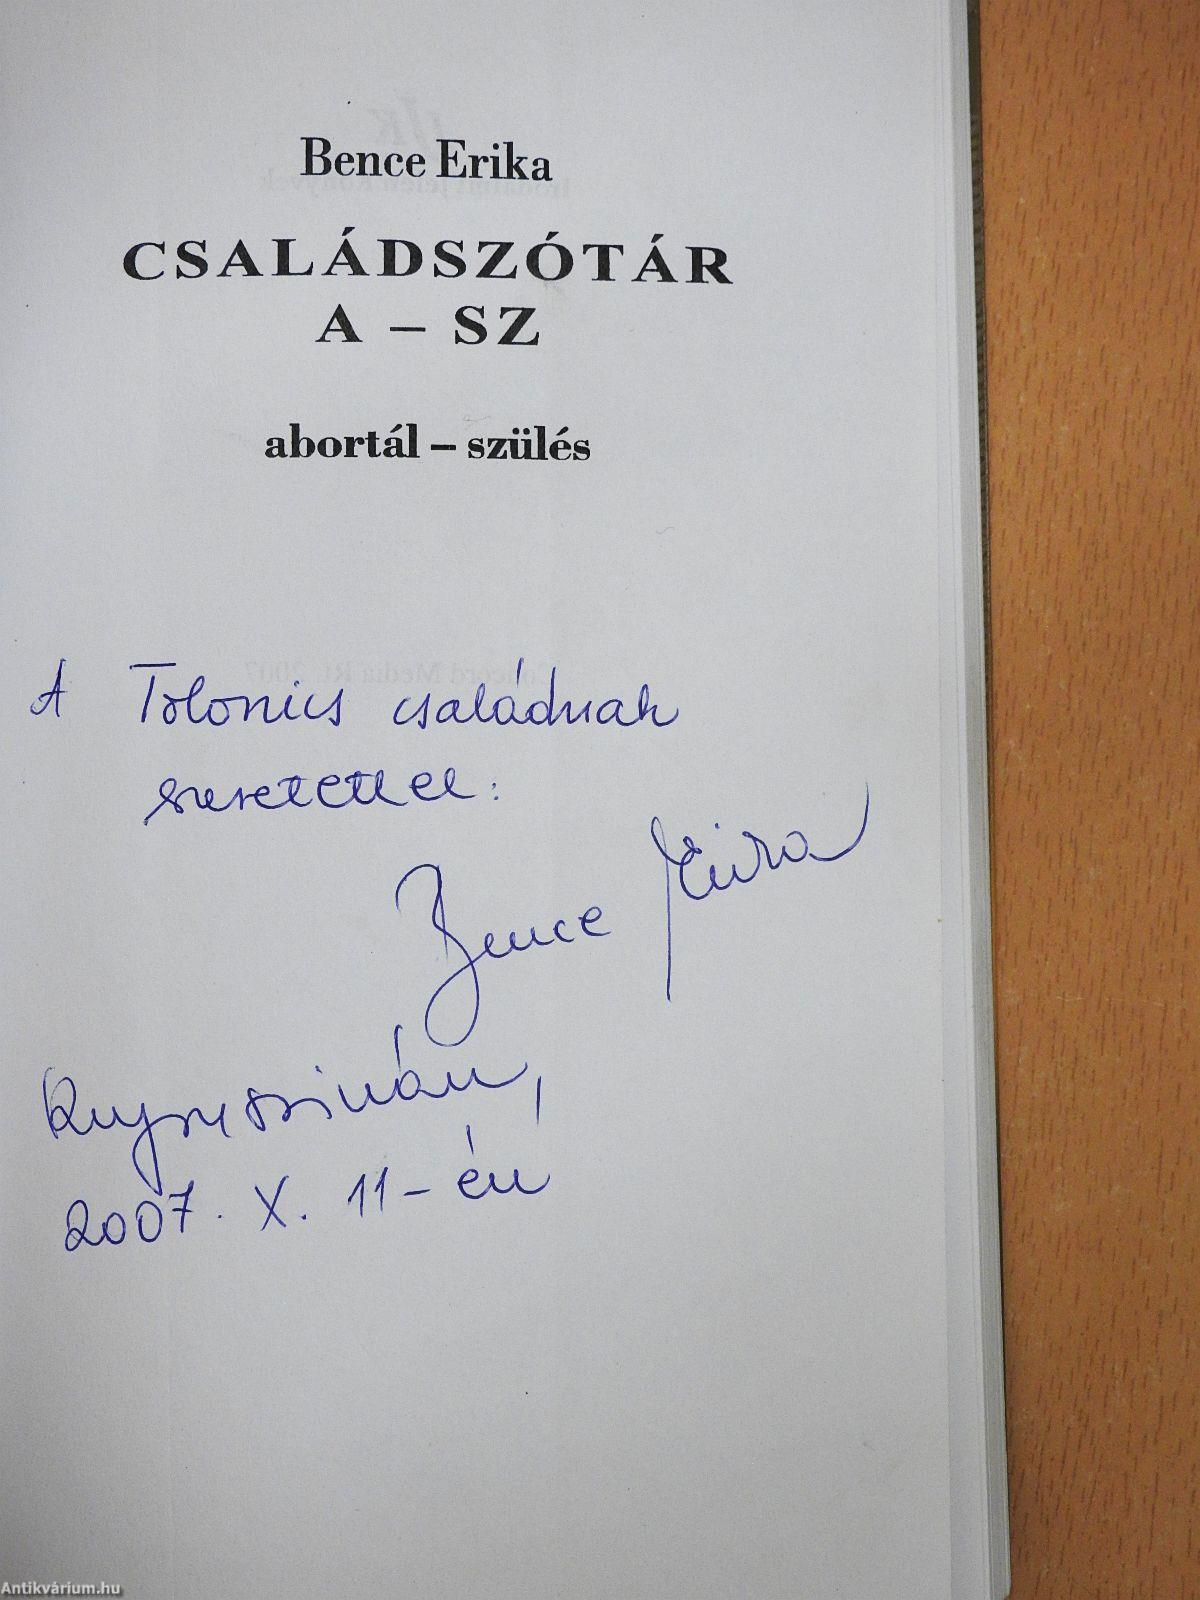 Bence Erika
CSALÁDSZÓTÁR
A – SZ
abortál – szülés
A Tolonics családnak
szeretettel:
Bence Erika
2007. X. 11-én
Antikvárium.hu